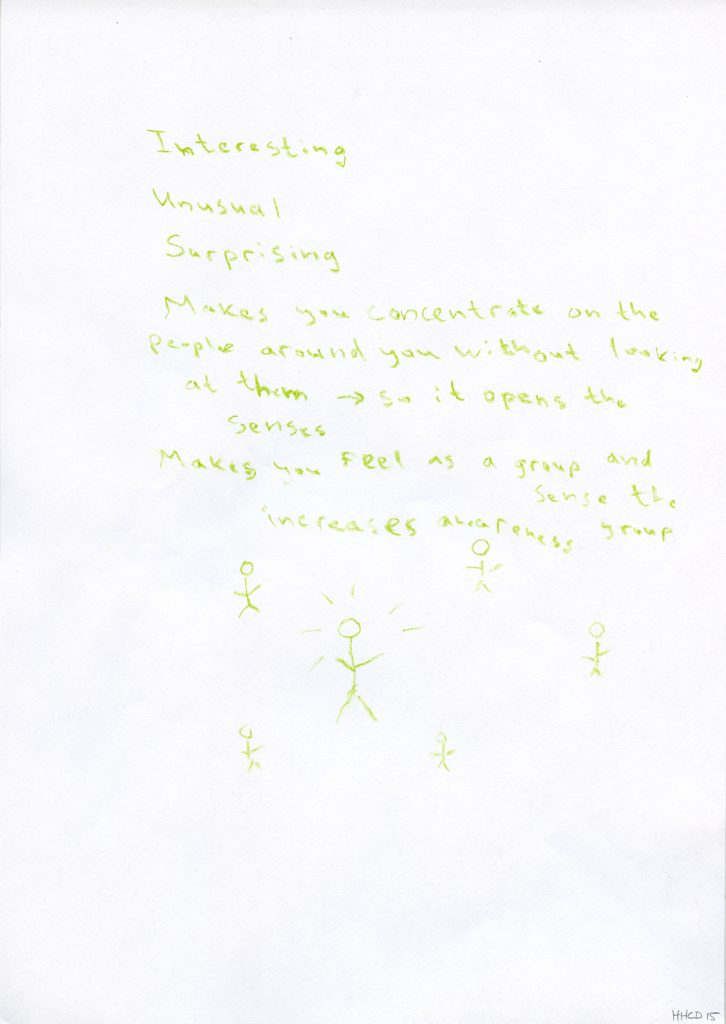 Interesting
Unusual
Surprising
Makes you concentrate on the
people around you without looking
at them → so it opens the
senses
Makes you Feel as a group and
sense the
increases awareness group
HHCD15